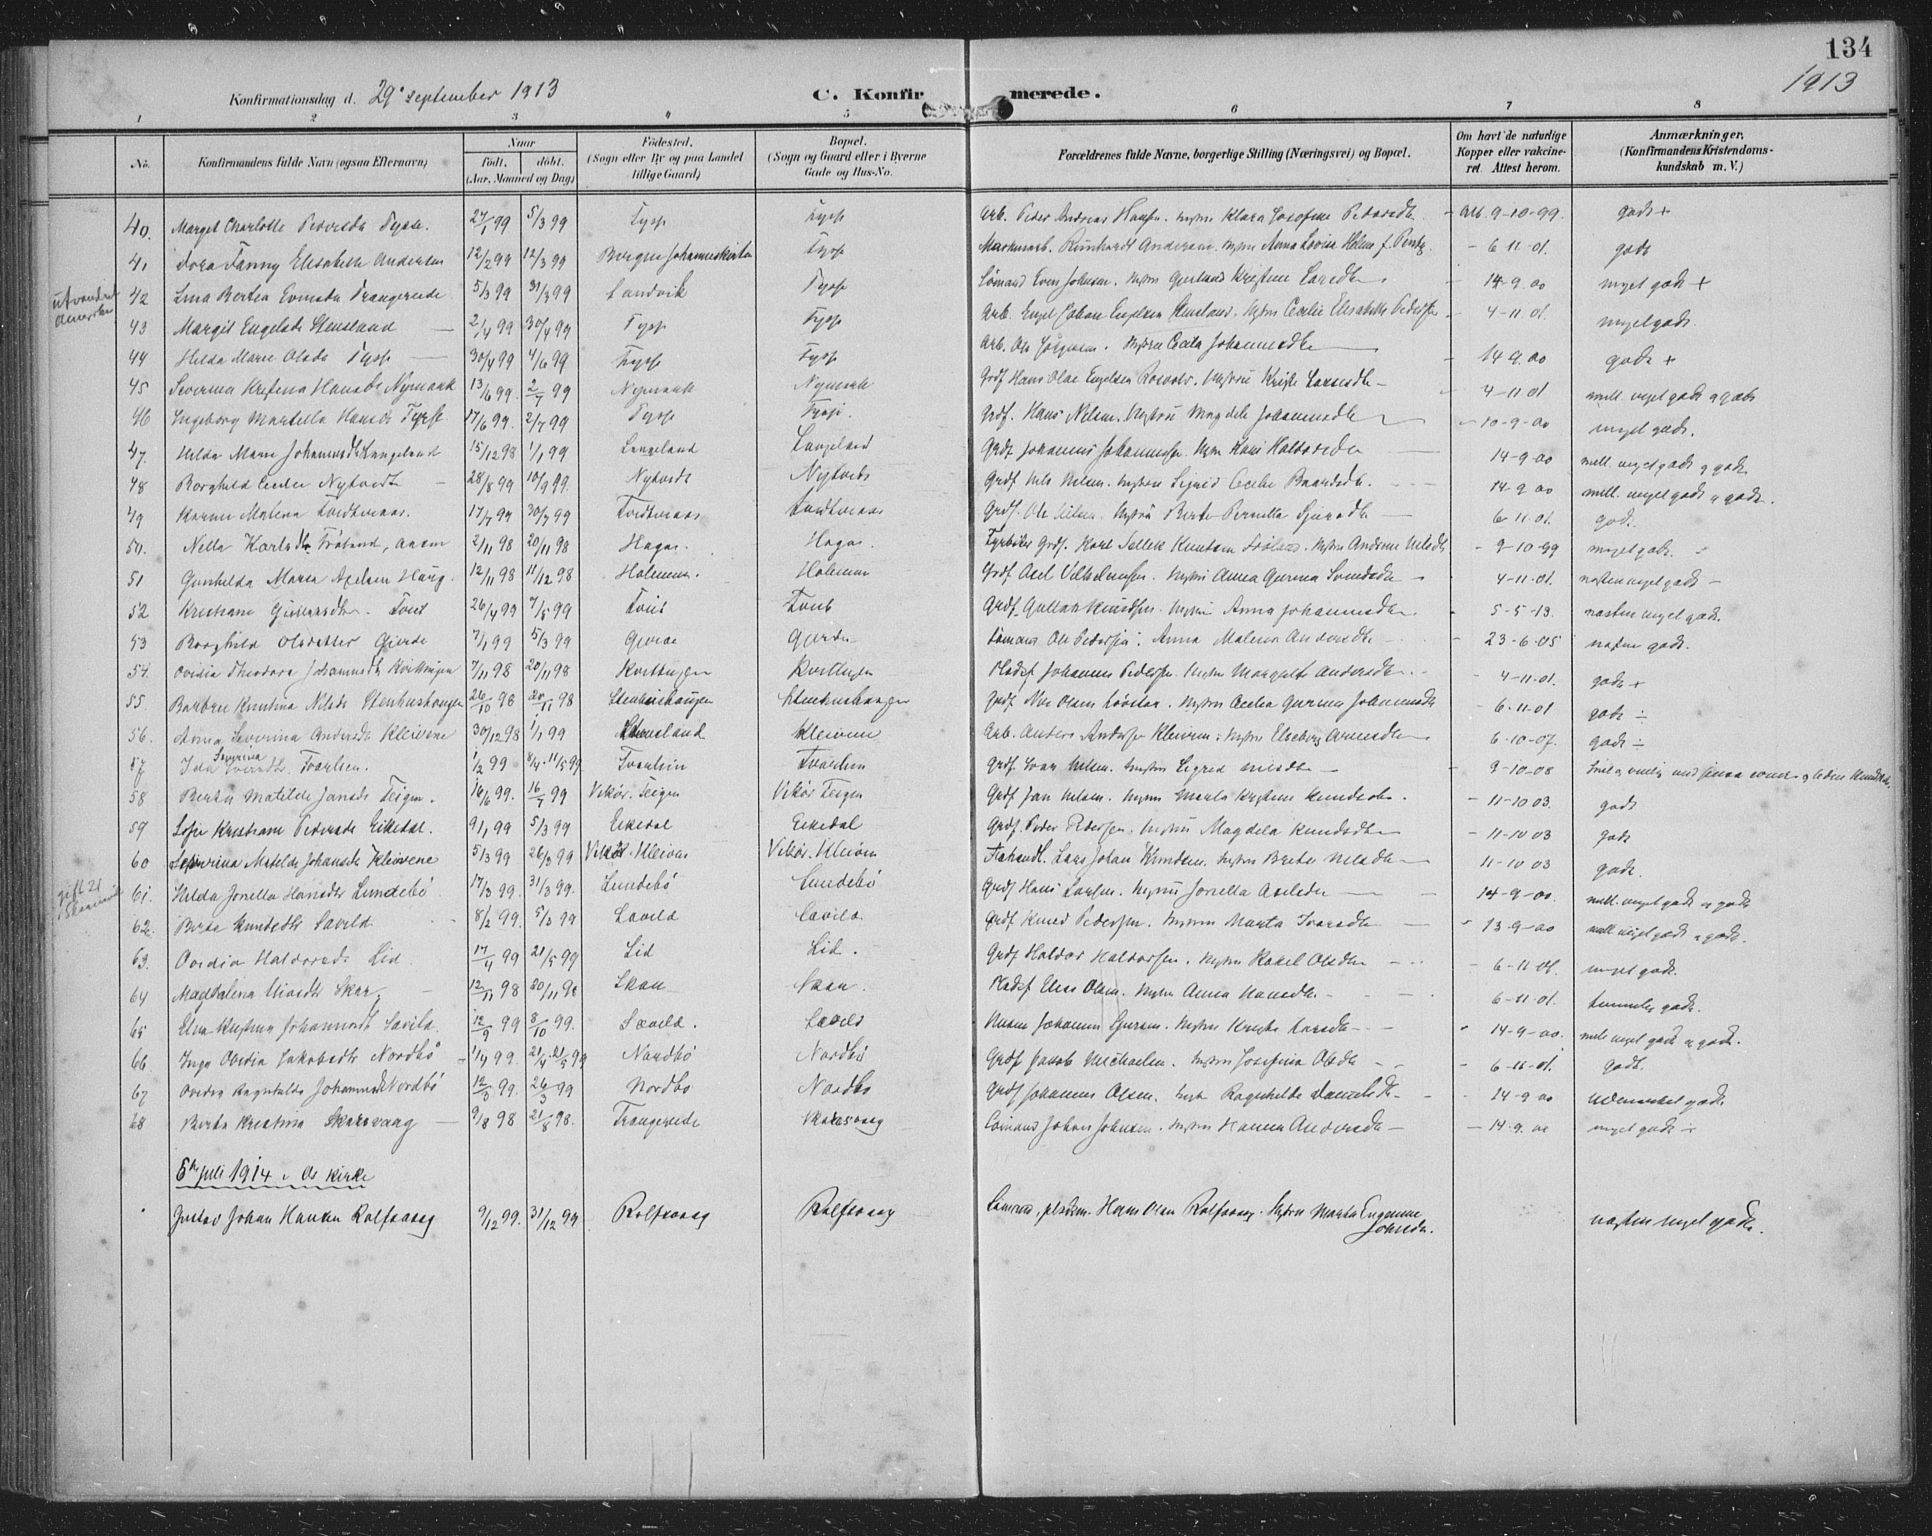 134
1913
Konfirmationsdag d. 29 september 1913
C. Konfirmerede.
1 2 3 4 5 6 7 8
No. Konfirmandens fulde Navn (ogsaa Efternavn) Naar født, døbt. (Aar, Maaned og Dag) Fødested. (Sogn eller By og paa Landet tillige Gaard) Bopæl. (Sogn og Gaard eller i Byerne Gade og Hus-No. Forældrenes fulde Navne, borgerlige Stilling (Næringsvei) og Bopæl. Om havt de naturlige Kopper eller vakcineret. Attest herom. Anmærkninger. (Konfirmandens Kristendomskundskab m. V.)
40. Marget Charlotte Tysse. 27/1 99 5/3 99 Tysse Tysse Arb. Peder Andreas Hansen. Hustru Klara Josefine Pedersdtr 9-10-99. godt +
41 Dora Fanny Elisabeth Andersen 12/2 99 12/3 99 Bergen Johanneskirken Tysse Andersen. Hustru Anna Lovise 6-11-01. godt
utvandret Amerika
42 Lina Bertea Trangereide 5/3 99 31/3 99 Landvik Tysse Sømand Even Johnsen. Hustru Kristine Larsdtr 14-9-00 meget godt +
43 Margit Engelsdtr Stensland 2/4 99 30/4 99 Tysse Tysse Arb. Engel Johan Engelsen Stensland. Hustru Cecilie Elisabeth Pedersdtr 4-11-01. meget godt.
44 Hilda Marie Olsdtr Tysse 30/4 99 4/6 99 Tysse Tysse Arb. Ole Hustru Johannesdtr 14-9-00 godt +
45 Severina Kristina Hansdtr Nymark 13/6 99. 2/7 99 Nymark Nymark Grdf Hans Olai Engelsen Hustru Larsdtr 4-11-01 mell. meget godt og godt
46 Ingeborg Martella Hansdtr Tysse 17/6 99. 2/7 99 Tysse Tysse. Grdf. Hans Nilsen. Hustru Magdela Johannesdtr 10-9-00 meget godt.
47. Hilda Marie Johannesdtr Langeland 15/12 98 1/1 99 Langeland Langeland Grdf Johannes Johannessen. Hustru Kari Haldorsdtr 14-9-00 mell. meget godt og godt
48 Borghild Cecilie Nytvedt 28/8 99 10/9 99. Nytvedt Nytvedt Grdf Nils Nilsen. Hustru Sigrid Cecilie Baardsdtr. 14-9 00 mell. meget godt og godt.
49 Karen Malena 17/7 99 30/7 99 Grdf. Ole Hustru Berte Pernella Sjursdtr 6-11-01. godt.
50. Nella Karlsdtr Frøland, 2/11 98 20/11 98 Hagas. Hagas. Grdf. Karl Sellek Knutsen Frøland. Hustru Andrine Nilsdtr 9-10-99 meget godt.
51 Gunhilda Maria Axelsen Haug. 12/11 98 11/12 98 Holmen. Holmen Grdf Axel Vilhelmsen. Hustru Anna Gurina Svendsdtr 4-11-01. næsten meget godt
52 Kristiane Gutlaksdtr. Tveit 26/4 99 7/5 99 Tveit Tveit Grdf. Gutlak Knudsen. Hustru Anna Johannesdtr. 5-5-13. næsten meget godt.
53 Borghild Olsdatter Gjerde 7/1 99 5/3 99 Gjerde Gjerde Sømand Ole Pedersen. Anna Malena Andersdtr 23-6-05 næsten godt.
54. Ovidia Theodora Johannesdtr Kvittingen 7/11 98 20/11 98 Kvittingen Kvittingen Pladsf Johannes Pedersen. Hustru Margrete Andersdtr 4-11-01. godt +
55. Barbra Knutina Nilsdtr Stenhushaugen 26/10 98 20/11 98 Stenhushaugen Stenhushaugen Grdf. Nils Olsen Løvstak. Hustru Cecilia Gurina Johannesdtr 6-11-01 godt ÷
56. Anna Severina Andersdtr Kleivene 30/12 98 1/1 99 Stensland Kleivene Arb. Anders Andersen Kleiven. Hustru Elseberg Arnesdtr 6-10-07. godt ÷
57 Ida Severina Iversdtr. 1/2 99 Grdf Ivar Nilsen. Hustru Sigrid Nilsdtr 9-10-08
58 Berta Matilde Jansdtr Teigen. 16/6 99. 16/7 99 Vikør. Teigen Vikør Teigen Grdf Jan Nilsen. Hustru Marta Kristine Knudsdtr. 11-10 03. godt
59 Sofie Kristiane Pedersdtr Eikedal. 9/1 99 5/3 99 Eikedal Eikedal Grdf. Peder Pedersen. Hustru Magdela Knudsdtr 11-10 03 godt
60 Severina Matilde Johansdtr Kleivene 5/3 99 26/3 99 Vikør. Kleiven Vikør. Kleiven Lars Johan Knudsen. Hustru Berta Nilsdtr 11-10 03 godt.
gift 21
61. Hilda Jonella Hansdtr Lundebø 17/3 99. 31/3 99. Lundebø Lundebø Grdf Hans Larsen. Hustru Jonella Axelsdtr 14-9-00. mell. meget godt og godt
62. Berta Knudsdtr Savild. 8/2 99. 5/3 99 Savild Savild. Grdf Knud Pedersen. Hustru Marta Ivarsdtr 13-9-00 mell meget godt og godt.
63. Ovidia Haldorsdtr Lid. 17/4 99 21/5 99 Lid Lid. Grdf Haldor Haldorsen. Hustru Rakel Olsdtr 6-11-01. meget godt.
64 Magdalena Skar. 12/11 98 20/11 98 Skar Skar. Pladsf Elias Olsen. Hustru Anna Hansdtr 6-11-01. temmelig godt.
65 Elna Kristina Johannesdtr Savild. 12/9 99 8/10 99. Savild. Savild Johannes Sjursen. Hustru Larsdtr 14-9-00. mell meget godt og godt.
66 Inga Ovidia Jakobsdtr Nordbø 1/4 99. 21/4 21/5 99 Nordbø Nordbø Grdf Jakob Michaelsen. Hustru Josefina Olsdtr 6-11-01. godt.
67 Ovidia Ragnhilda Johannesdtr Nordbø 12/3 99. 26/3 99 Nordbø Nordbø Grdf Johannes Olsen. Hustr Ragnhilda Danielsdtr 14-9 00 udmerket godt
68 Berta Kristina Skarsvaag 9/8 98 21/8 98. Trangereide Skarsvaag Sømand Johan Johnsen. Hustru Hanna Andersdtr 14-9. 00 meget godt ÷
5te juli 1914 i Os kirke
Gustav Johan Hansen Rolfsvaag 9/12 99. 31/12 99. Rolfsvaag Rolfsvaag Sømand, pladsm. Hans Olsen Rolfsvaag. Hustru Marta Eugenine Johnsdtr. næsten meget godt.